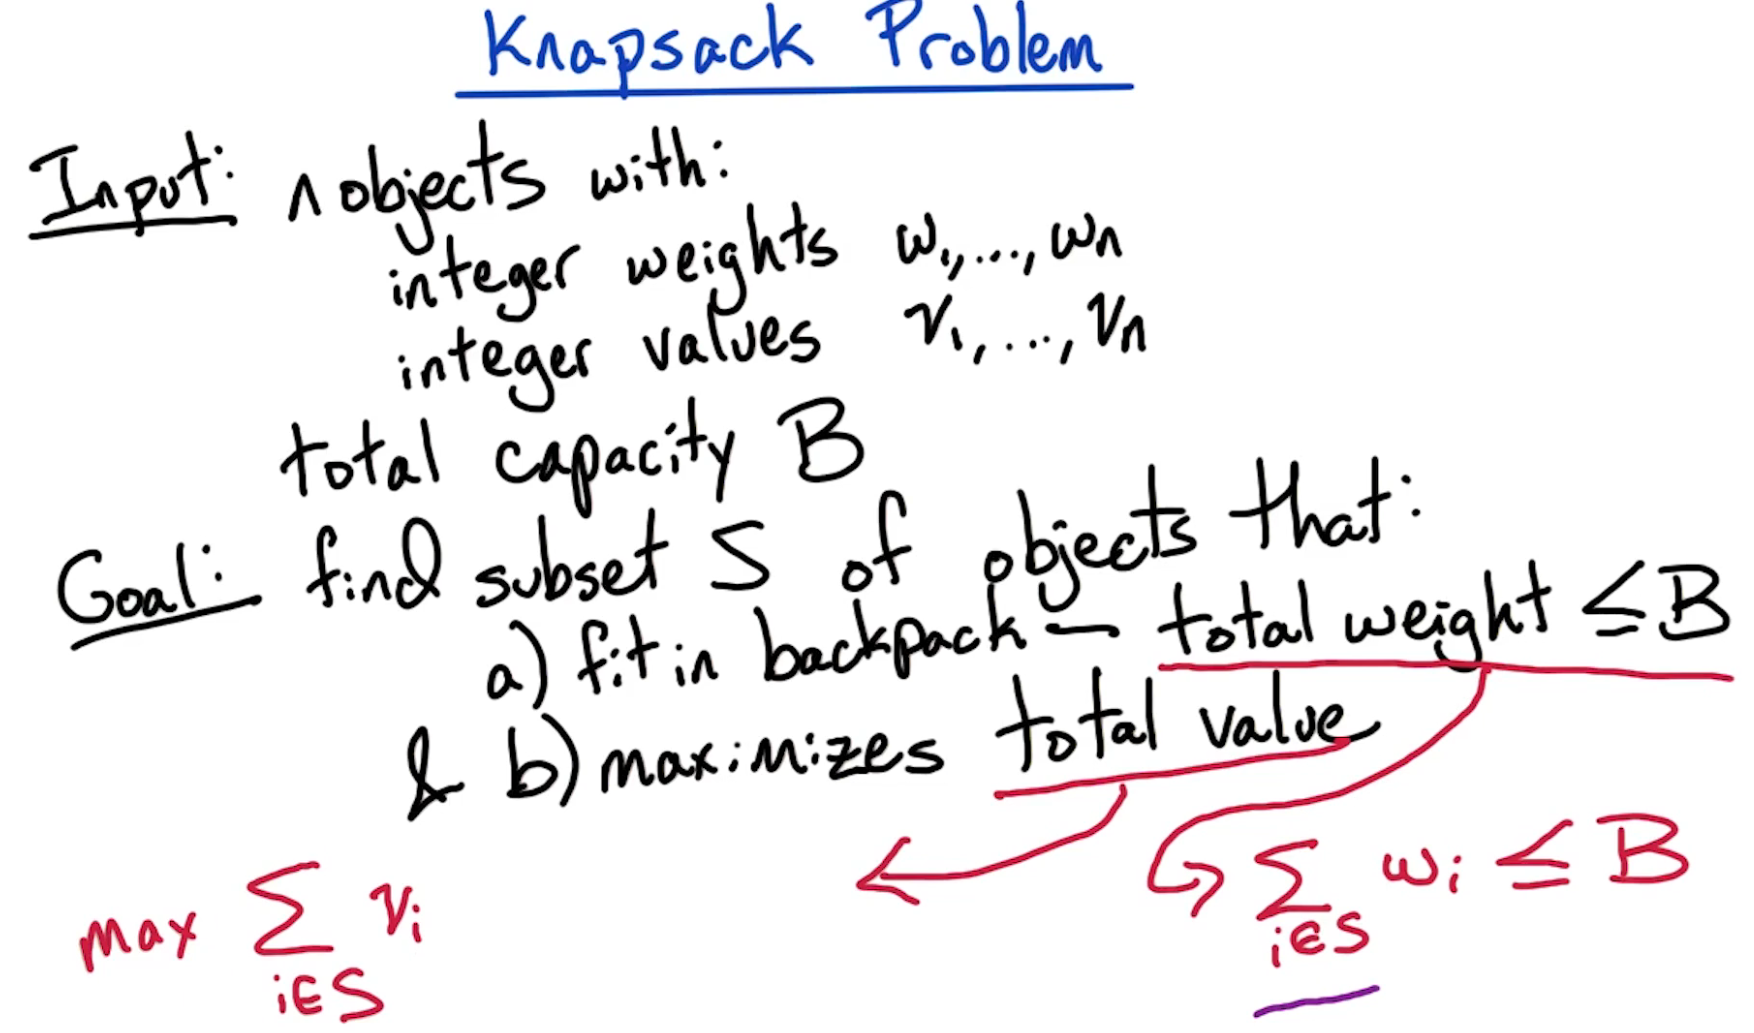 Knapsack Problem
Input: n objects with:
integer weights w₁,...,wₙ
integer values v₁,...,vₙ
total capacity B
Goal: find subset S of objects that:
a) fit in backpack — total weight ≤ B
& b) maximizes total value
max ∑ vᵢ
i∈S
∑ wᵢ ≤ B
i∈S